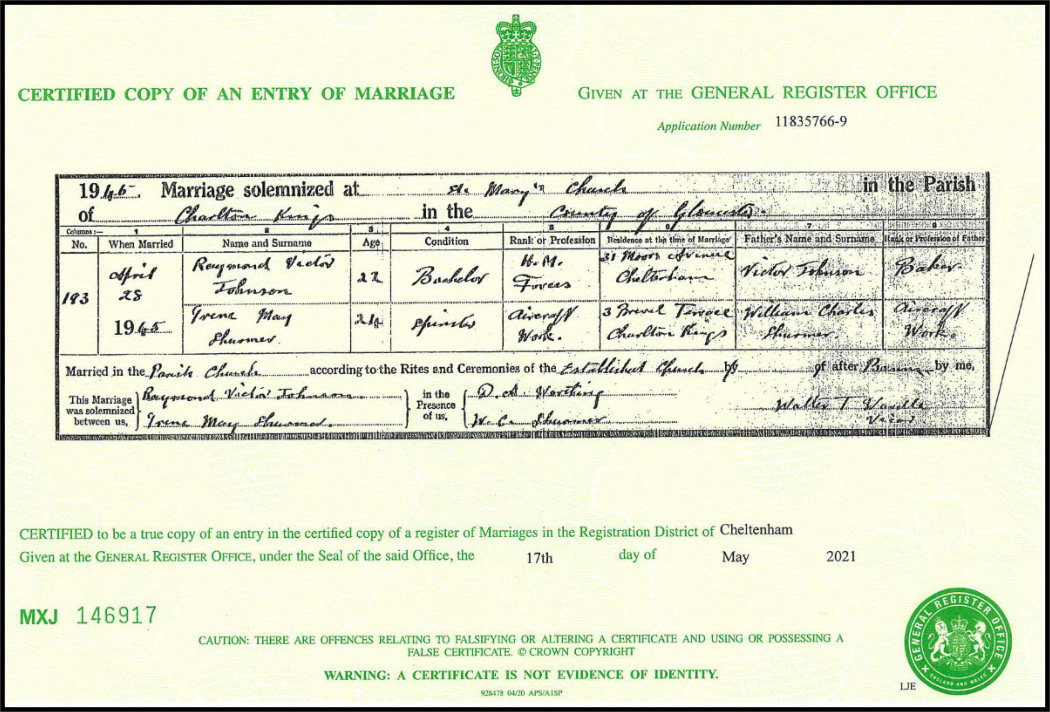 CERTIFIED COPY OF AN ENTRY OF MARRIAGE
GIVEN AT THE GENERAL REGISTER OFFICE
Application Number 11835766-9
1945. Marriage solemnized at St. Mary's Church in the Parish
of Charlton Kings in the County of Gloucester.
Columns :— 1 2 3 4 5 6 7 8
No. When Married Name and Surname Age Condition Rank or Profession Residence at the time of Marriage Father's Name and Surname Rank or Profession of Father
193 April 28 1945 Raymond Victor Johnson 22 Bachelor H.M. Forces 31 Moors Avenue Cheltenham Victor Johnson Baker
Irene May Shurmer 24 Spinster Aircraft Work. 3 Terrace Charlton Kings William Charles Shurmer Aircraft Work.
Married in the Parish Church according to the Rites and Ceremonies of the Established Church by of after Banns by me,
This Marriage was solemnized between us, Raymond Victor Johnson in the Presence of us, D. A.
Irene May Shurmer. W. C. Shurmer Walter T Vicar
CERTIFIED to be a true copy of an entry in the certified copy of a register of Marriages in the Registration District of Cheltenham
Given at the GENERAL REGISTER OFFICE, under the Seal of the said Office, the 17th day of May 2021
MXJ 146917
CAUTION: THERE ARE OFFENCES RELATING TO FALSIFYING OR ALTERING A CERTIFICATE AND USING OR POSSESSING A
FALSE CERTIFICATE. © CROWN COPYRIGHT
WARNING: A CERTIFICATE IS NOT EVIDENCE OF IDENTITY.
928478 04/20 APS/A1SP
LJE
GENERAL REGISTER OFFICE
ENGLAND AND WALES